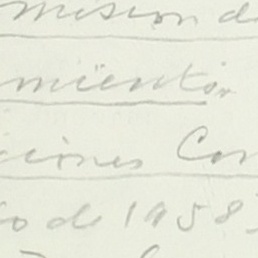 misión d
miento
ciones Con
o de 1958